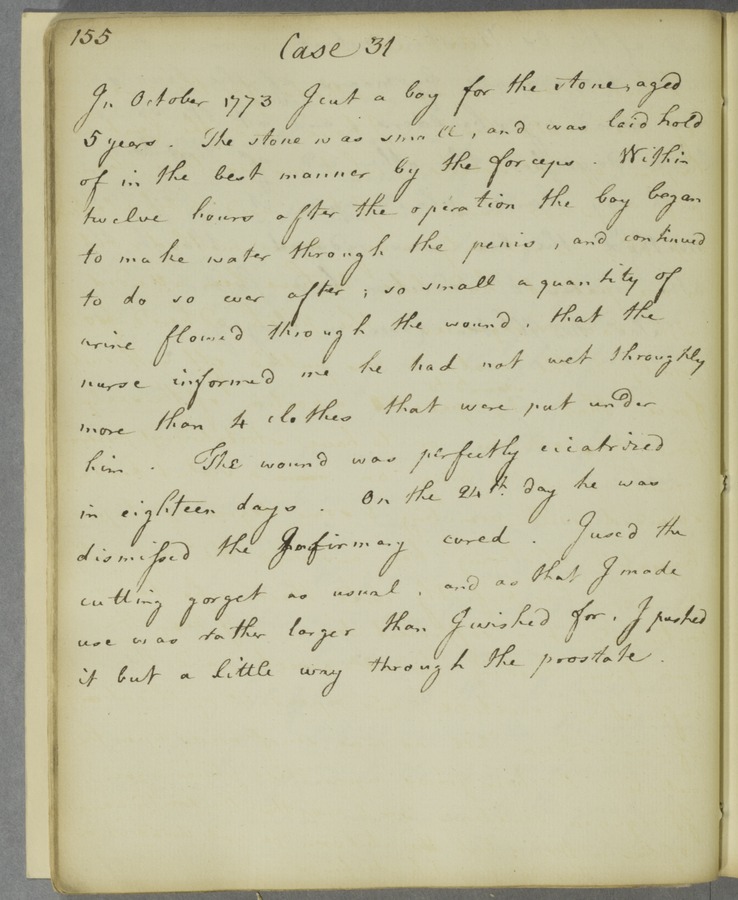 155
Case 31
In October 1773 I cut a boy for the stone, aged
5 years. The stone was small, and was laid hold
of in the best manner by the forceps. Within
twelve hours after the operation the boy began
to make water through the penis, and continued
to do so ever after; so small a quantity of
urine flowed through the wound, that the
nurse informed me he had not wet throughly
more than 4 clothes that were put under
him. The wound was perfectly cicatrized
in eighteen days. On the 24th. day he was
dismissed the Infirmary cured. I used the
cutting gorget as usual, and as that I made
use was rather larger than I wished for, I pushed
it but a little way through the prostate.